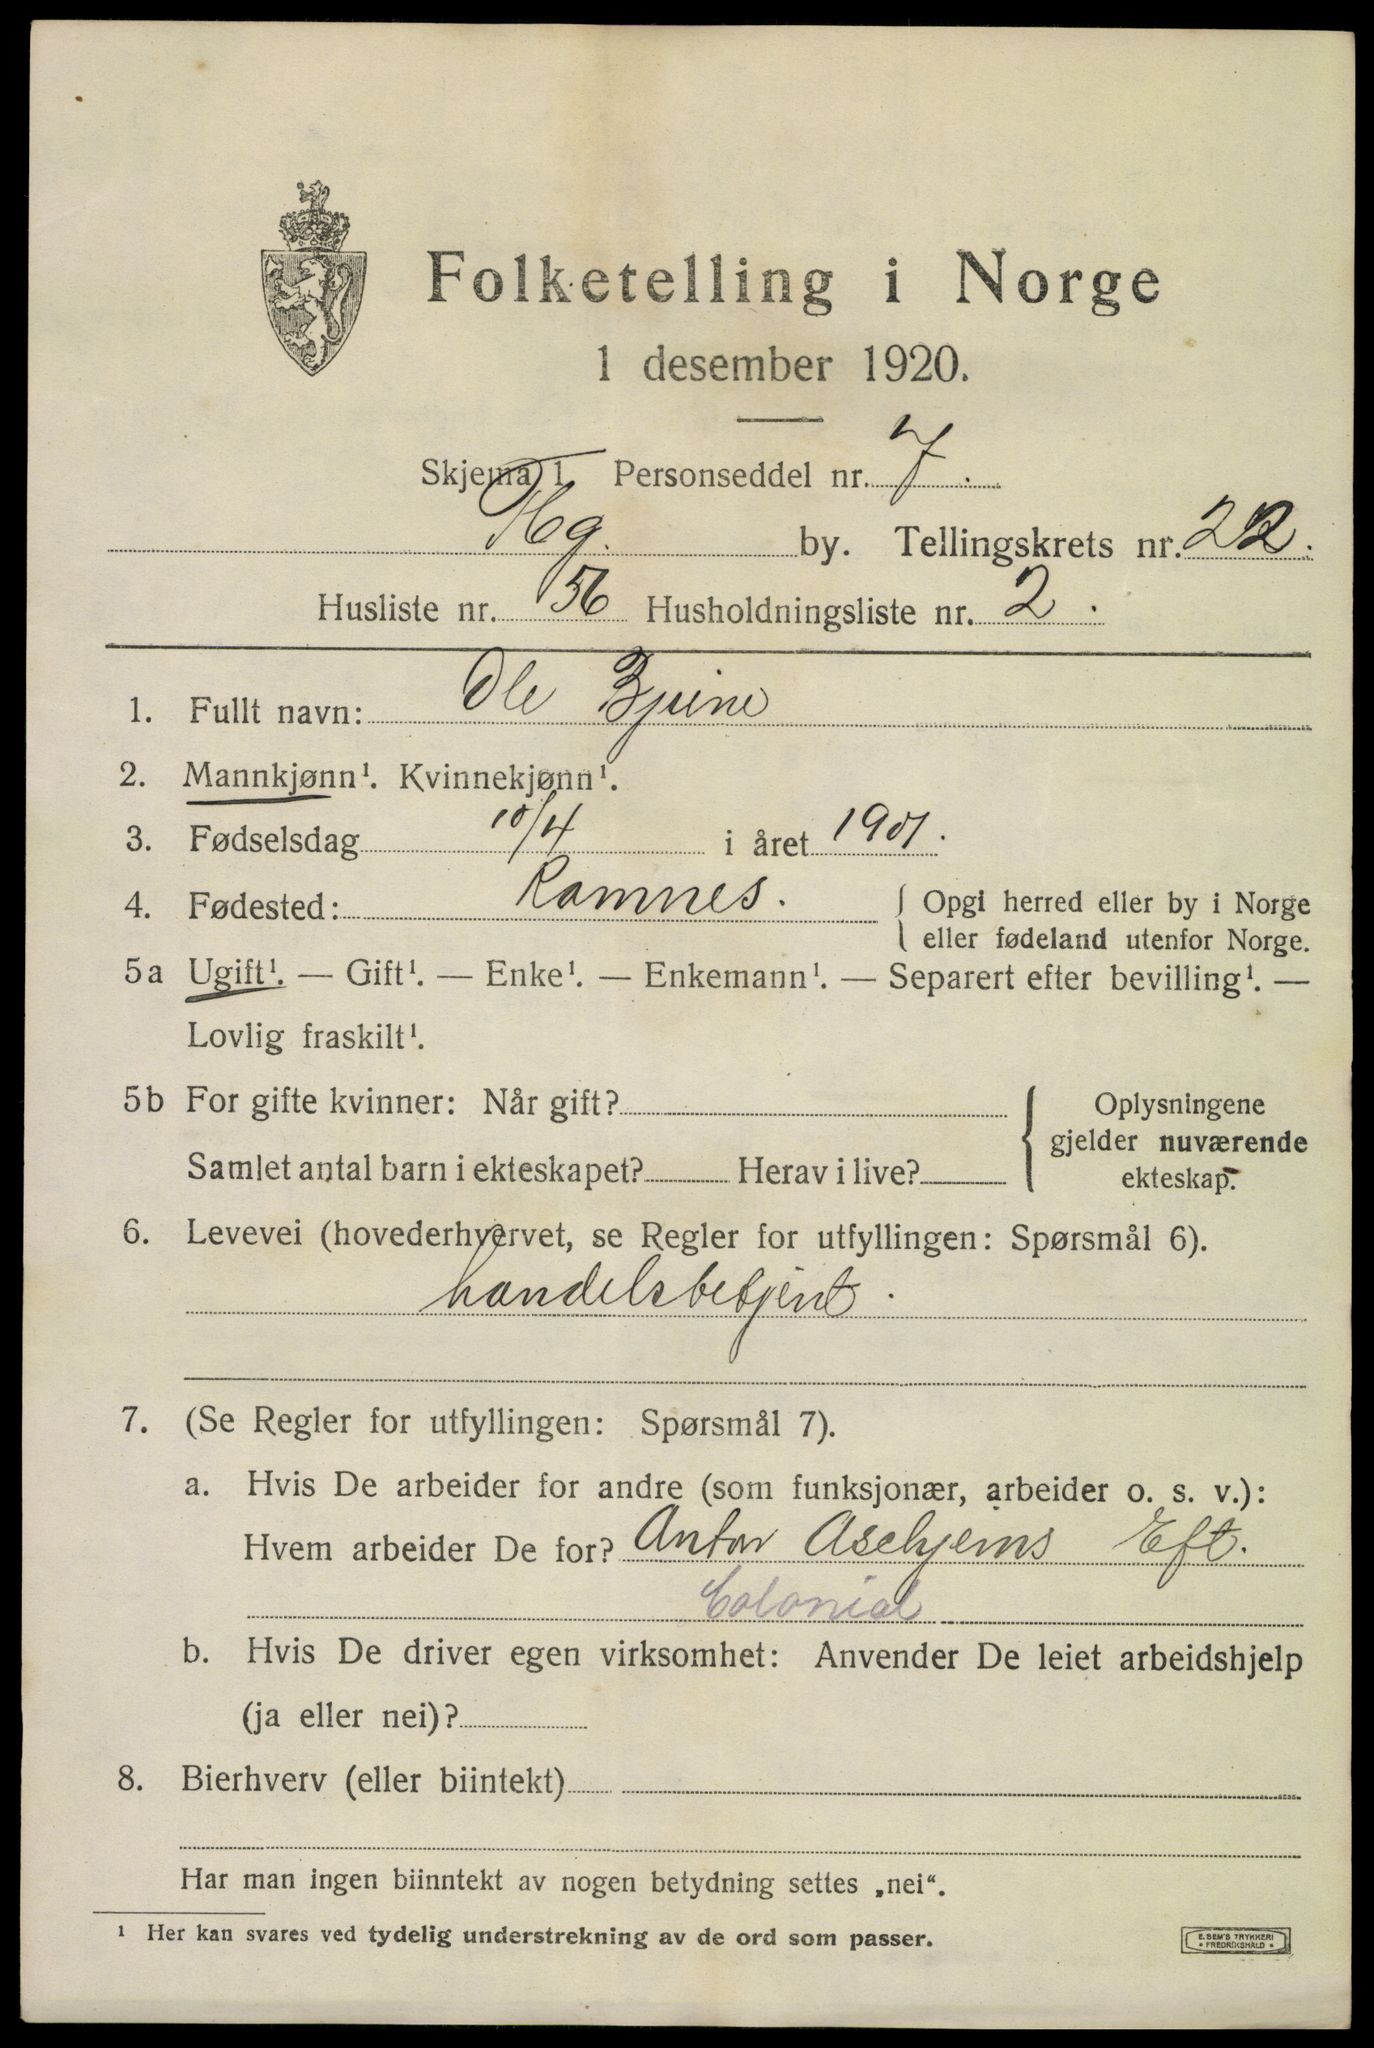 Folketelling i Norge
1 desember 1920.
Skjema 1. Personseddel nr. 7.
Kbg. by. Tellingskrets nr. 22.
Husliste nr. 56 Husholdningsliste nr. 2.
1. Fullt navn: Ole Bjune
2. Mannkjønn¹. Kvinnekjønn¹.
3. Fødselsdag 10/4 i året 1901.
4. Fødested: Ramnes. { Opgi herred eller by i Norge
eller fødeland utenfor Norge.
5a Ugift¹. — Gift¹. — Enke¹. — Enkemann¹. — Separert efter bevilling¹. —
Lovlig fraskilt¹.
5b For gifte kvinner: Når gift? { Oplysningene
gjelder nuværende
Samlet antal barn i ekteskapet? Herav i live? ekteskap.
6. Levevei (hovederhvervet, se Regler for utfyllingen: Spørsmål 6).
handelsbetjent.
7. (Se Regler for utfyllingen: Spørsmål 7).
a. Hvis De arbeider for andre (som funksjonær, arbeider o. s. v.):
Hvem arbeider De for? Anton Aschjems Eft.
Colonial
b. Hvis De driver egen virksomhet: Anvender De leiet arbeidshjelp
(ja eller nei)?
8. Bierhverv (eller biintekt)
Har man ingen biinntekt av nogen betydning settes „nei“.
¹ Her kan svares ved tydelig understrekning av de ord som passer.
E. SEM'S TRYKKERI
• FREDRIKSHALD •